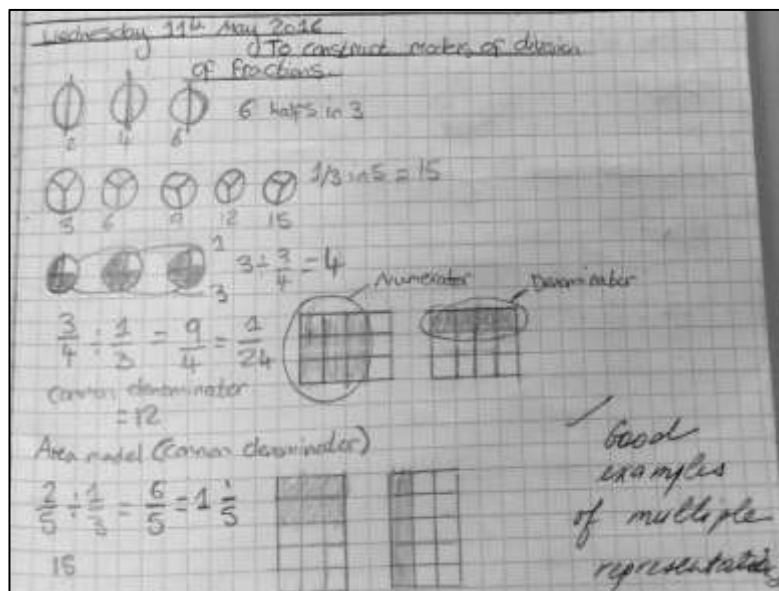 Wednesday 11th May 2016
To construct models of division
of fractions.
2 4 6 6 halfs in 3
3 6 9 12 15 1/3 in 5 = 15
1
3 3 ÷ 3/4 = 4
Numerator Denominator
3/4 ÷ 1/3 = 9/4 = 1/24
common denominator
= 12
Area model (common denominator)
2/5 ÷ 1/3 = 6/5 = 1 1/5
15
Good
examples
of multiple
representations